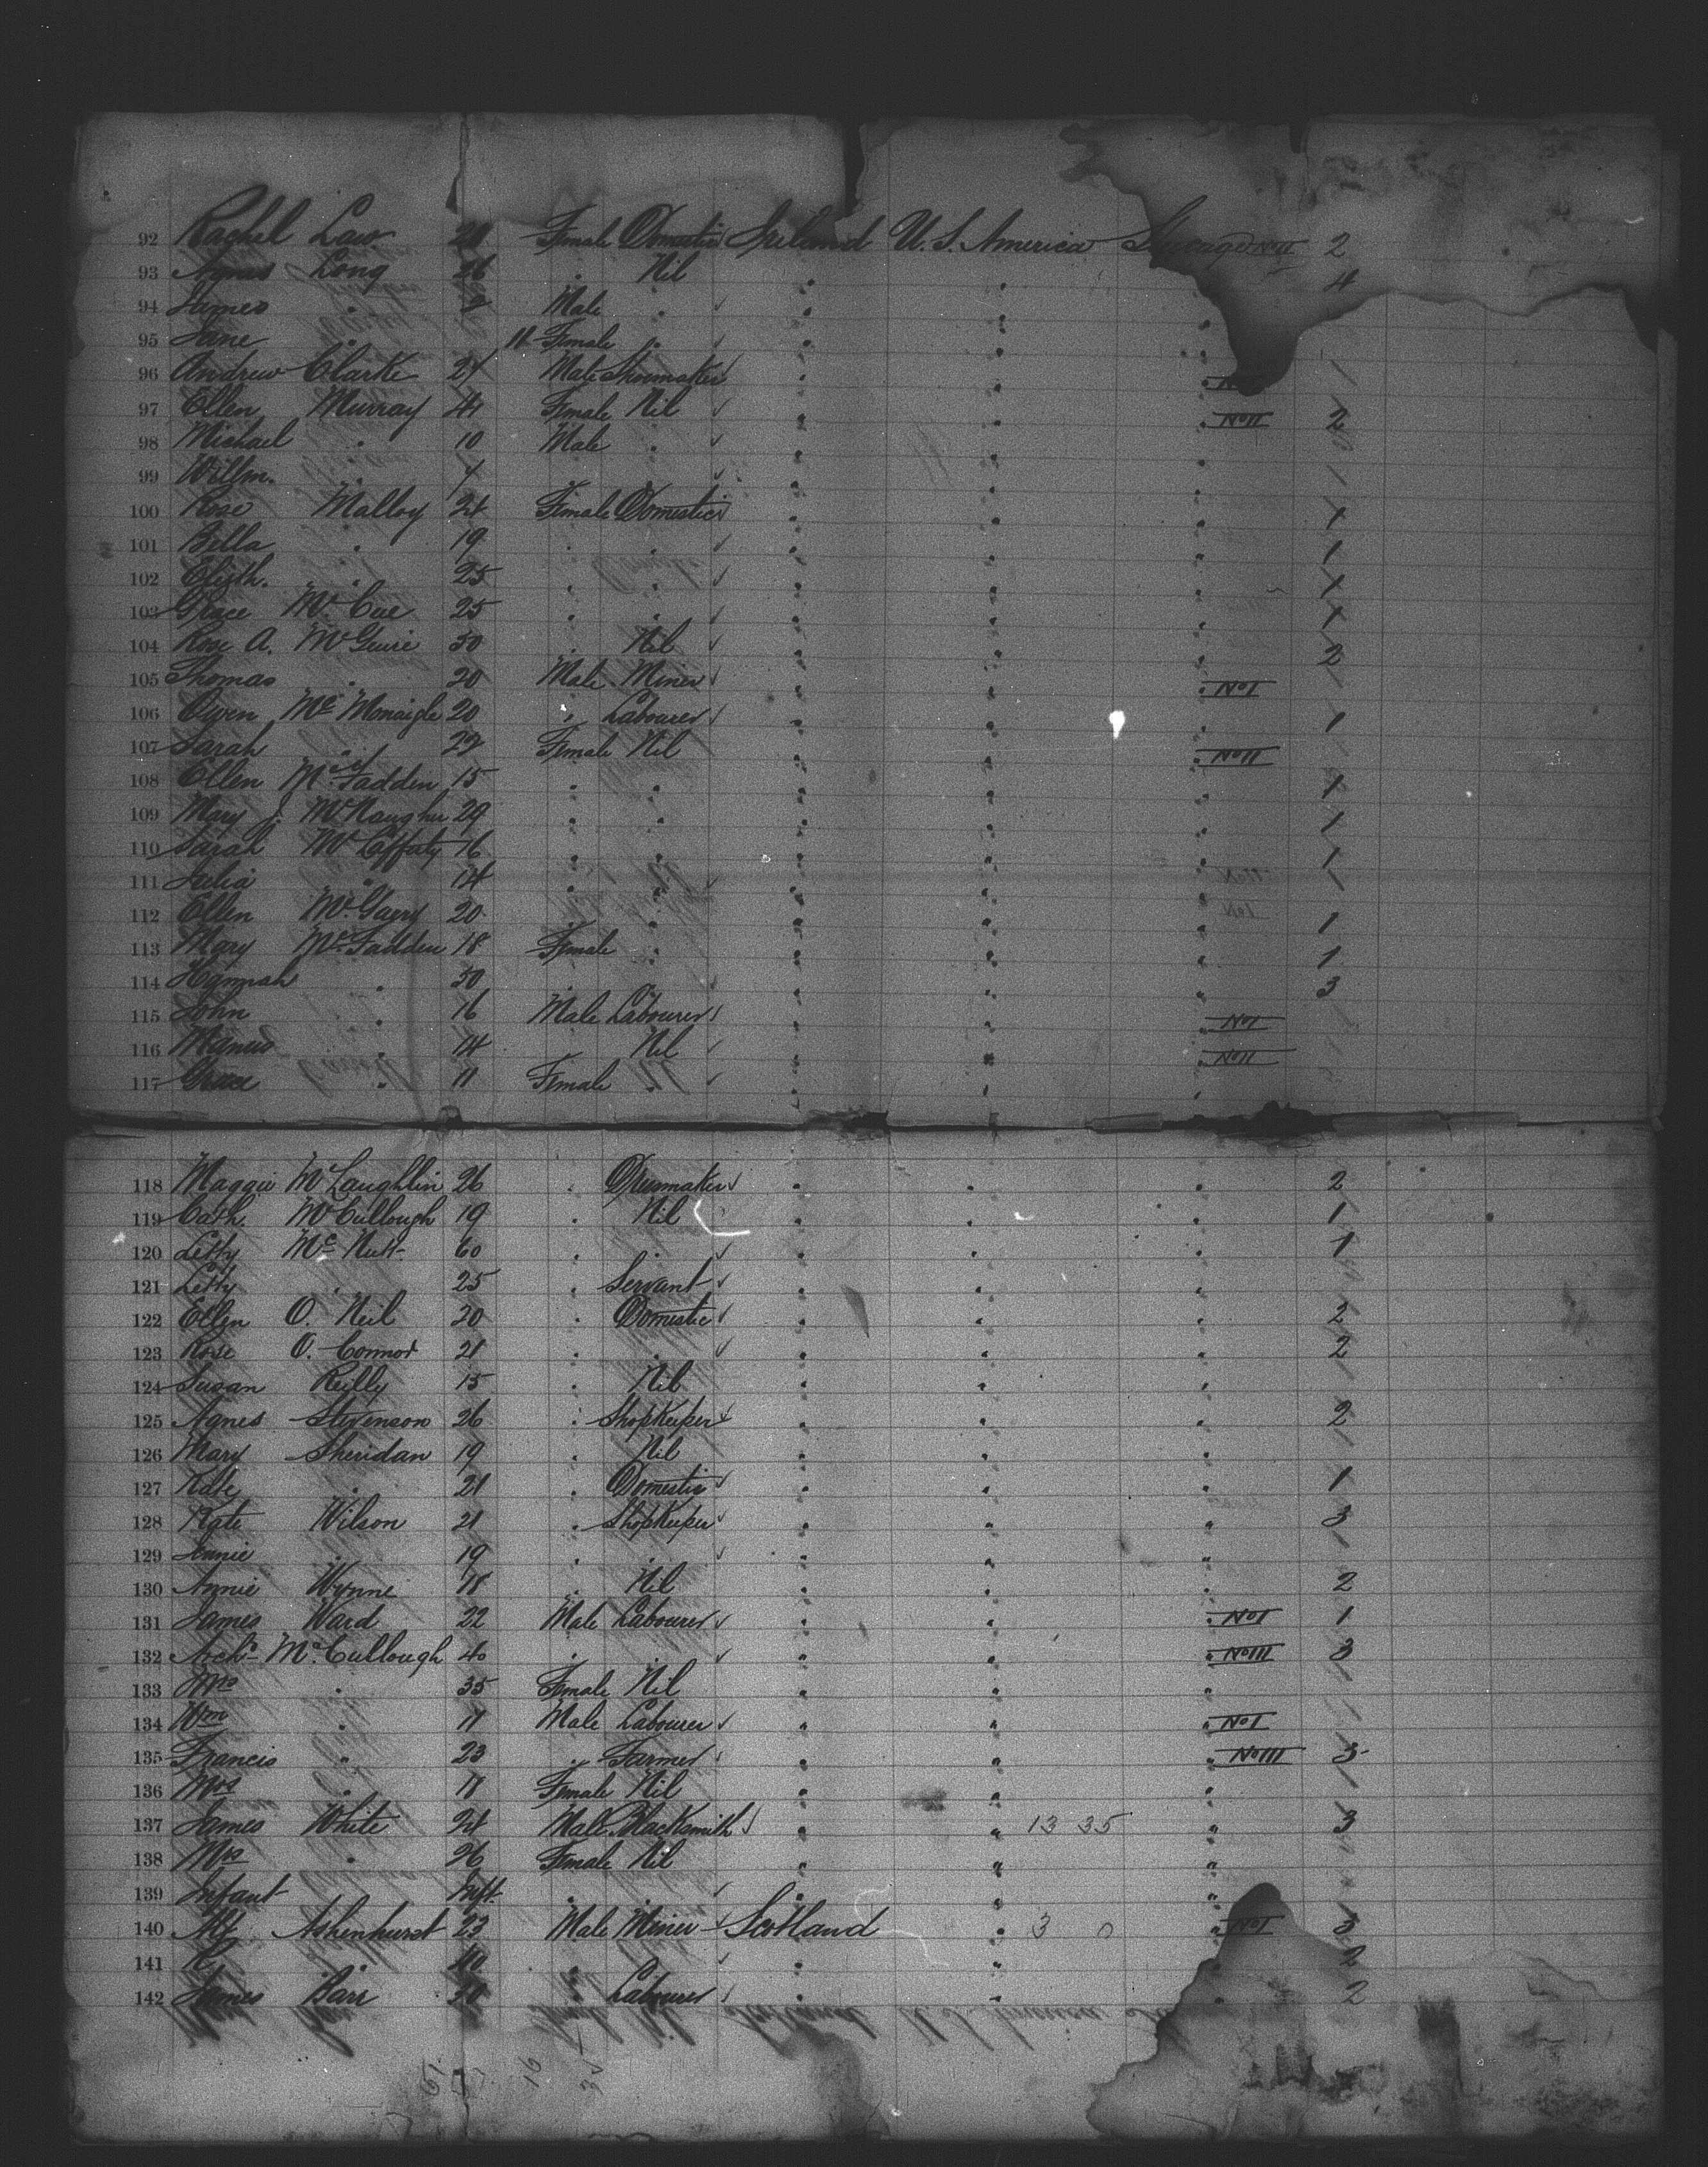 92 Rachel Law 20 Female Domestic Ireland U.S. America Steerage No II 2
93 Agnes Long 26 " Nil " " " 4
94 James " 2 Male " " " "
95 Jane " 11 Female " " " "
96 Andrew Clarke 24 Male Shoemaker " " " 1
97 Ellen Murray 41 Female Nil " " " No II 2
98 Michael " 10 Male " " " "
99 Willm. " 7 " " " "
100 Rose Malloy 24 Female Domestic " " " 1
101 Bella " 19 " " " " " 1
102 Elizth. " 25 " " " " " 1
103 Grace McCue 25 " " " " " 1
104 Rose A. McGuire 50 " Nil " " " 2
105 Thomas " 20 Male Miner " " " No I
106 Owen McMonaigle 20 " Labourer " " " 1
107 Sarah " 22 Female Nil " " " No II
108 Ellen McFadden 15 " " " " " 1
109 Mary J. McNaugher 29 " " " " " 1
110 Sarah McCafferty 16 " " " " " 1
111 Julia " 14 " " " " "
112 Ellen McGarry 20 " " " " 1
113 Mary McFadden 18 Female " " " " 1
114 Hannah " 50 " " " " 3
115 John " 16 Male Labourer " " " No I
116 Manus " 14 Nil " " " No II
117 Grace " 11 Female " " " "
118 Maggie McLaughlin 26 " Dressmaker " " " 2
119 Cath. McCullough 19 " Nil " " " 1
120 Letty McNutt 60 " " " " " 1
121 Letty " 25 " Servant " " "
122 Ellen O. Neil 20 " Domestic " " " 2
123 Rose O. Connor 21 " " " " " 2
124 Susan Reilly 15 " Nil " " "
125 Agnes Stevenson 26 " Shopkeeper " " " 2
126 Mary Sheridan 19 " Nil " " "
127 Kate " 21 Domestic " " " 1
128 Kate Wilson 21 " Shopkeeper " " " 3
129 Annie " 19 " " " " "
130 Annie Wynne 18 Nil " " " 2
131 James Ward 22 Male Labourer " " " No I 1
132 Archd. McCullough 40 " " " " " No III 3
133 Mrs " 35 Female Nil " " "
134 Wm " 11 Male Labourer " " " No I
135 Francis " 23 " Farmer " " " No III 3
136 Mrs " 18 Female Nil " " "
137 James White 24 Male Blacksmith " " 13 35 " 3
138 Mrs " 26 Female Nil " " "
139 Infant Inft. " " " "
140 Alf. Ashenhurst 23 Male Miner Scotland " 3 0 " No I 3
141 R. " 40 " " " " 2
142 James Barr 30 " Labourer " " " 2